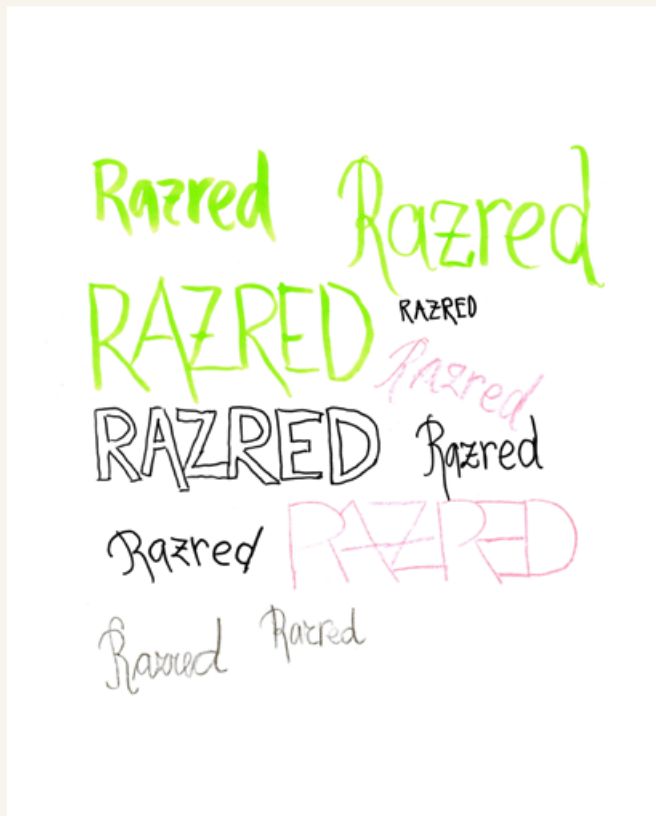 Razred Razred
RAZRED RAZRED
Razred
RAZRED Razred
Razred RAZRED
Razred Razred